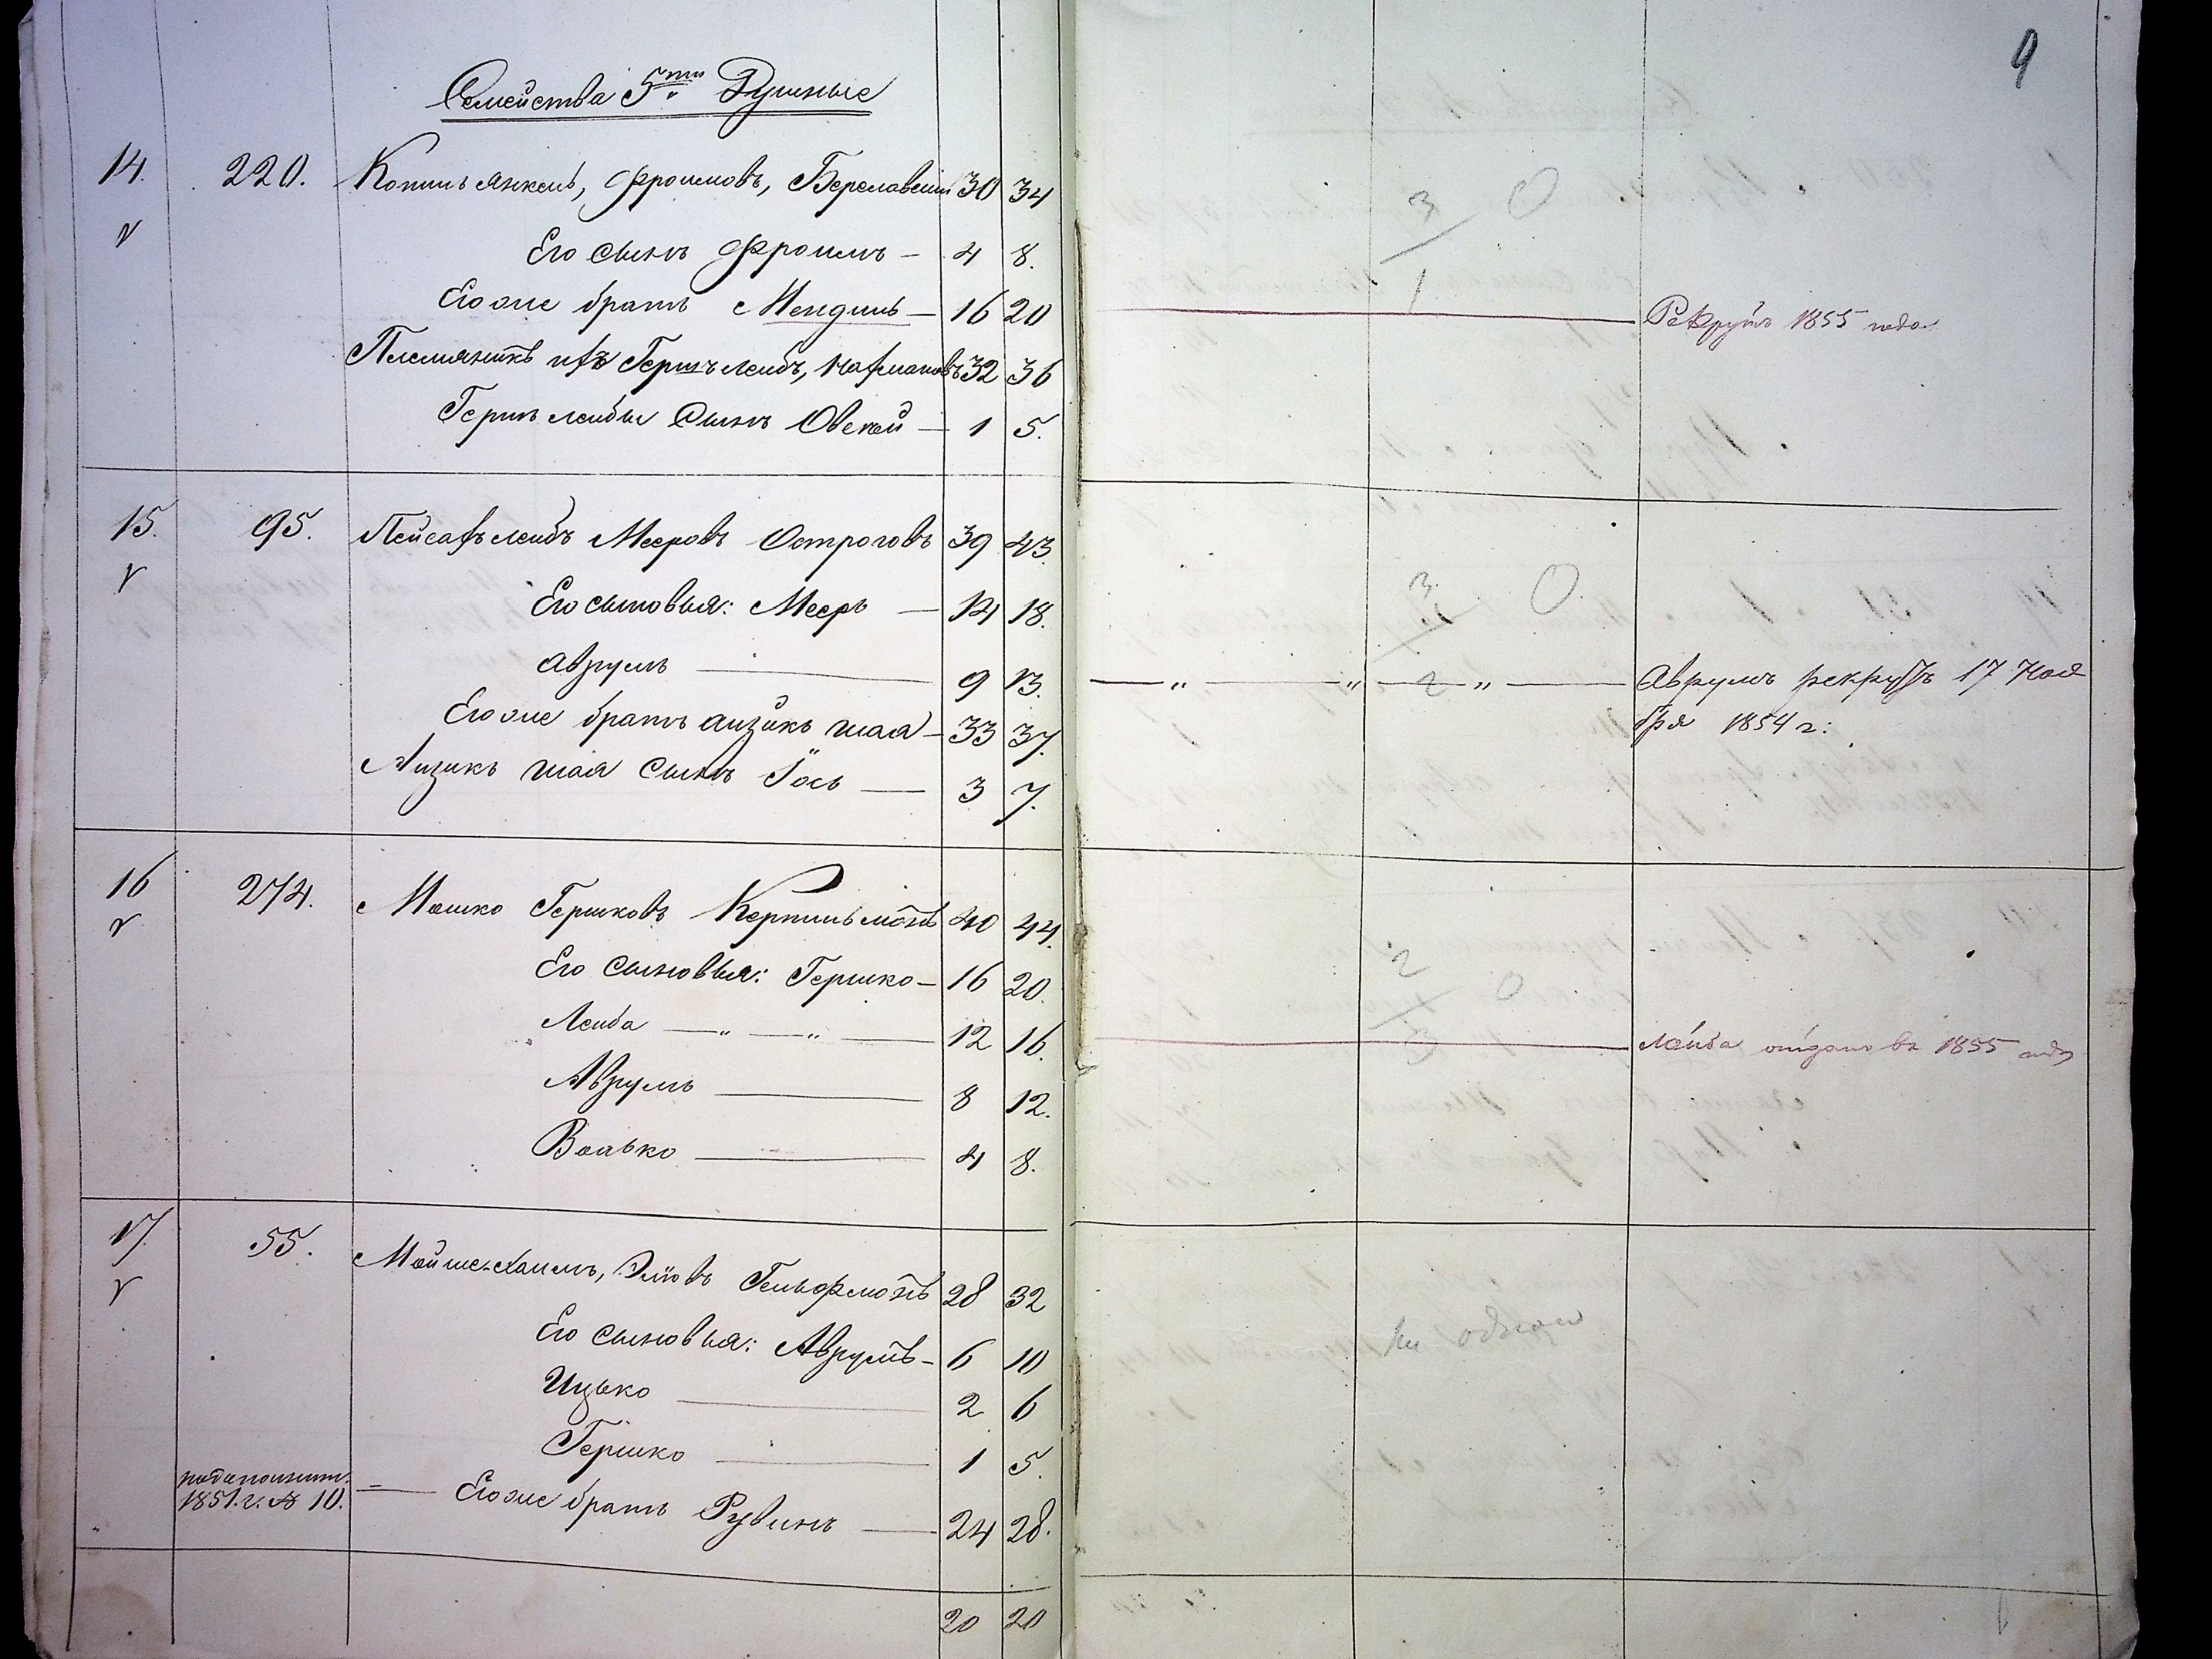 9
Семейства 5ти Душные
14. 220. Копиль Янкель, Фроимовъ, Береславский 30 34
Его сынъ Фроимъ — 4 8.
3 0
Его же братъ Мендиль — 16 20
1
Рекрутъ 1855 года
Племяникъ ихъ Гершъ Лейбъ, Нахмановъ 32 36
Гершъ Лейбы Сынъ Овсей — 1 5.
15. 95. Пейсахъ Лейбъ Мееровъ Остроговъ 39 43
Его сыновья: Мееръ — 14 18.
3 0
Аврумъ — 9 13. — „ — „ — 2 — „ — Аврумъ рекрутъ 17 Ноя
Его же братъ Айзикъ Шая — 33 37.
бря 1854 г:
Айзикъ Шая Сынъ Іось — 3 7.
16 274. Мошко Гершковъ 40 44.
Его Сыновья: Гершко — 16 20.
2 0
Лейба — „ — „ — 12 16. 3 Лейба отдано въ 1855 году
Аврумъ — 8 12.
Волько — 4 8.
17. 55. Мойше-Хаимъ, Эліовъ Гельфманъ 28 32
Его Сыновья: Аврумъ — 6 10
ни одного
Ицько — 2 6
Гершко — 1 5.
1851. г. № 10. — Его же братъ Рувинъ — 24 28.
20 20